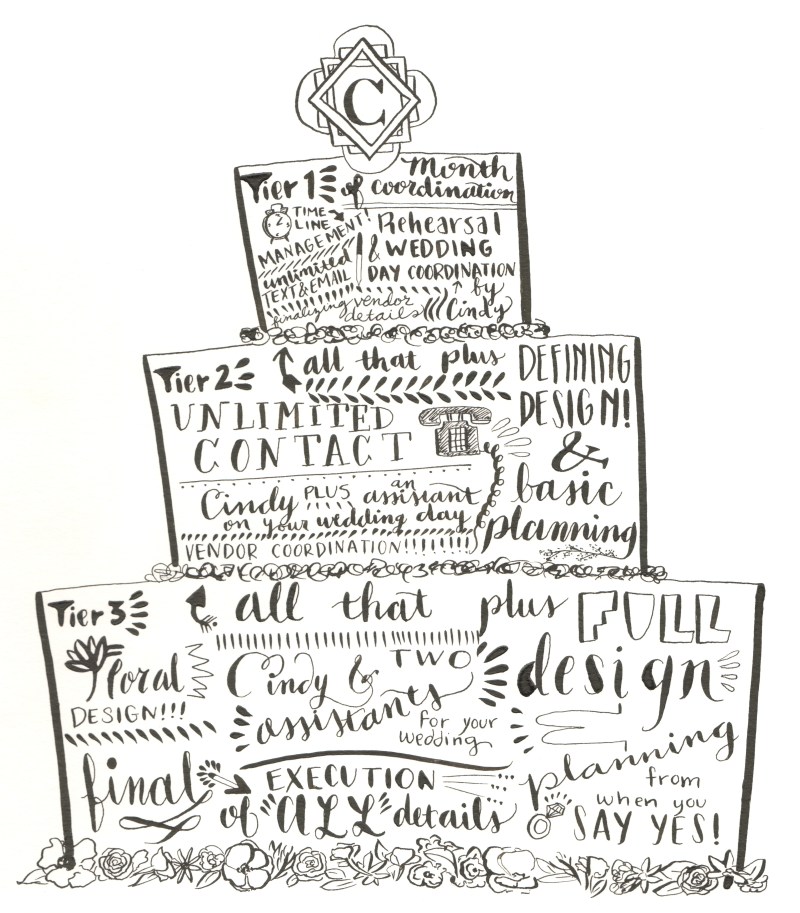 C
Tier 1
Month
of coordination
TIME
LINE
MANAGEMENT!
unlimited
TEXT & EMAIL
finalizing vendor
details
Rehearsal
& WEDDING
DAY COORDINATION
by
Cindy
Tier 2
all that plus
UNLIMITED
CONTACT
Cindy PLUS an
assistant
on your wedding day
VENDOR COORDINATION!!!!!!!!
DEFINING
DESIGN!
&
basic
planning
Tier 3
all that plus FULL
design
floral
DESIGN!!!
Cindy & TWO
assistants
for your
wedding
planning
from
when you
SAY YES!
final
EXECUTION
of "ALL" details